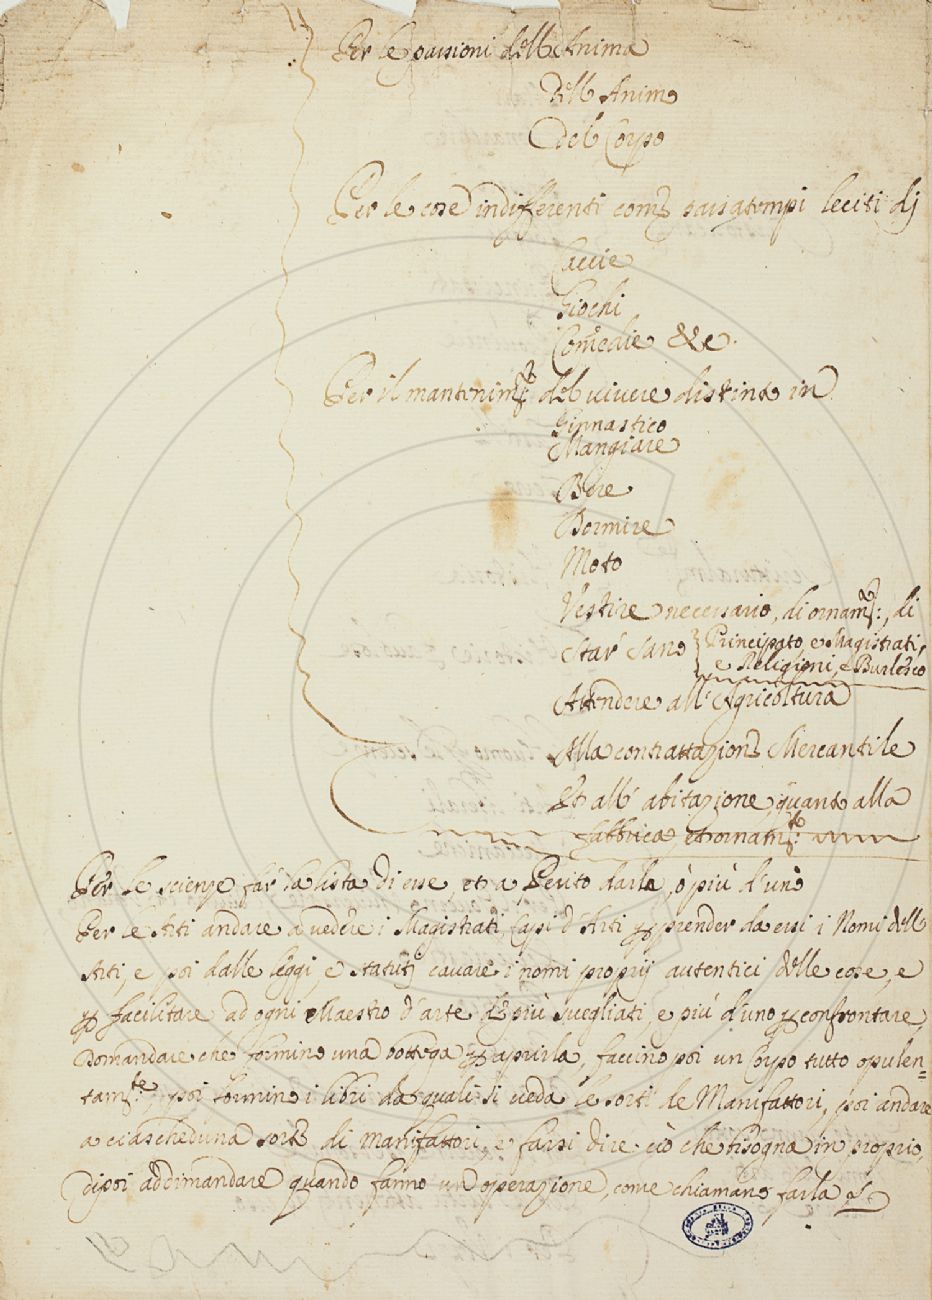 Per le passioni dell'Anima
Dell'Animo
Del Corpo
Per le cose indifferenti come passatempi leciti di
Caccie
Giochi
Comedie &c.
Per il mantenim.to del vivere distinto in
Ginnastico
Mangiare
Bere
Dormire
Moto
Vestire necessario, di ornam.to, di
Star Sano
Principato, e Magistrati,
e Religioni, e Burlesco
Attendere all'Agricoltura
Alla contrattazione Mercantile
Et all'abitazione, quanto alla
fabbrica, et ornam.to
Per le scienze far la lista di esse, et a Perito darla, ò più d'uno
Per le Arti andare a vedere i Magistrati, Capi d'Arti per prender da essi i Nomi dell'
Arti, e poi dalle leggi, e statuti cavare i nomi proprij autentici delle cose, e
per facilitare ad ogni Maestro d'arte più svegliati, e più d'uno per confrontare,
Domandare che formino una bottega per aprirla, faccino poi un Corpo tutto opulen=
tam.te, poi formino i libri da quali si veda le sorti de Manifattori, poi andare
a ciascheduna sorte di manifattori, e farsi dire ciò che bisogna in proprio,
dipoi addimandare quando fanno un'operazione, come chiamano farla